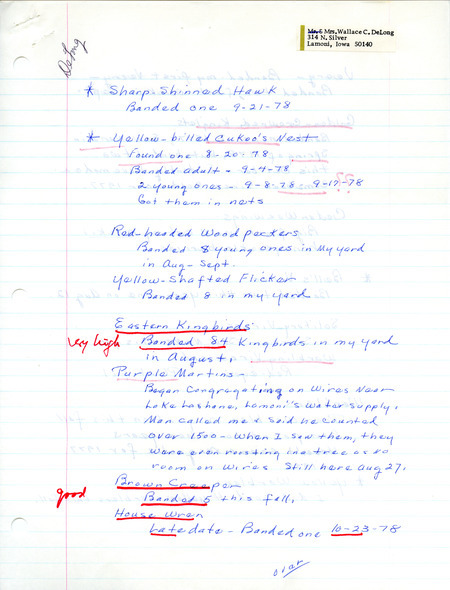 DeLong
Mr. & Mrs. Wallace C. DeLong
314 N. Silver
Lamoni, Iowa 50140
* Sharp-Shinned Hawk
Banded one 9-21-78
* Yellow-billed Cukoo's Nest
Found one 8-20-78
Banded adult - 9-4-78
2 young ones - 9-8-78 - 9-17-78 ??
Got them in nets
Red-headed Woodpeckers
Banded 8 young ones in My yard
in Aug-Sept.
Yellow-Shafted Flicker
Banded 8 in my yard
Eastern Kingbirds
Very high Banded 84 Kingbirds in my yard
in August.
Purple Martins -
Began Congregating on Wires Near
Lake Lashane, Lamoni's Water Supply.
Man called me & said he counted
over 1500 - When I saw them, they
were even roosting in a tree as no
room on wires Still here Aug 27.
Brown Creeper
good Banded 5 this fall.
House Wren
Late date - Banded one 10-23-78
over